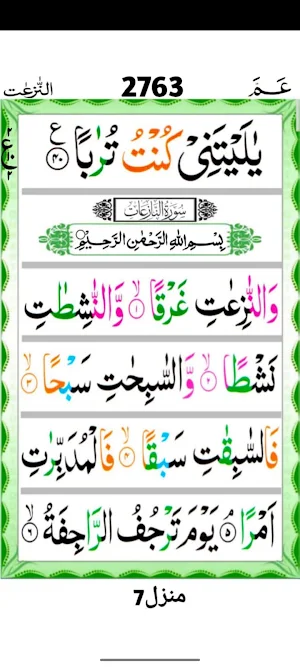 النّٰزِعٰت 2763 عَمَّ
یٰلَیْتَنِیْ كُنْتُ تُرٰبًا ۴۰ ع
ع ۲ ۲
سُورَةُ النَّازِعَات
بِسْمِ اللهِ الرَّحْمٰنِ الرَّحِیْمِ
وَالنّٰزِعٰتِ غَرْقًا ۱ وَّالنّٰشِطٰتِ
نَشْطًا ۲ وَّالسّٰبِحٰتِ سَبْحًا ۳
فَالسّٰبِقٰتِ سَبْقًا ۴ فَالْمُدَبِّرٰتِ
اَمْرًا ۵ یَوْمَ تَرْجُفُ الرَّاجِفَةُ ۶
منزل7